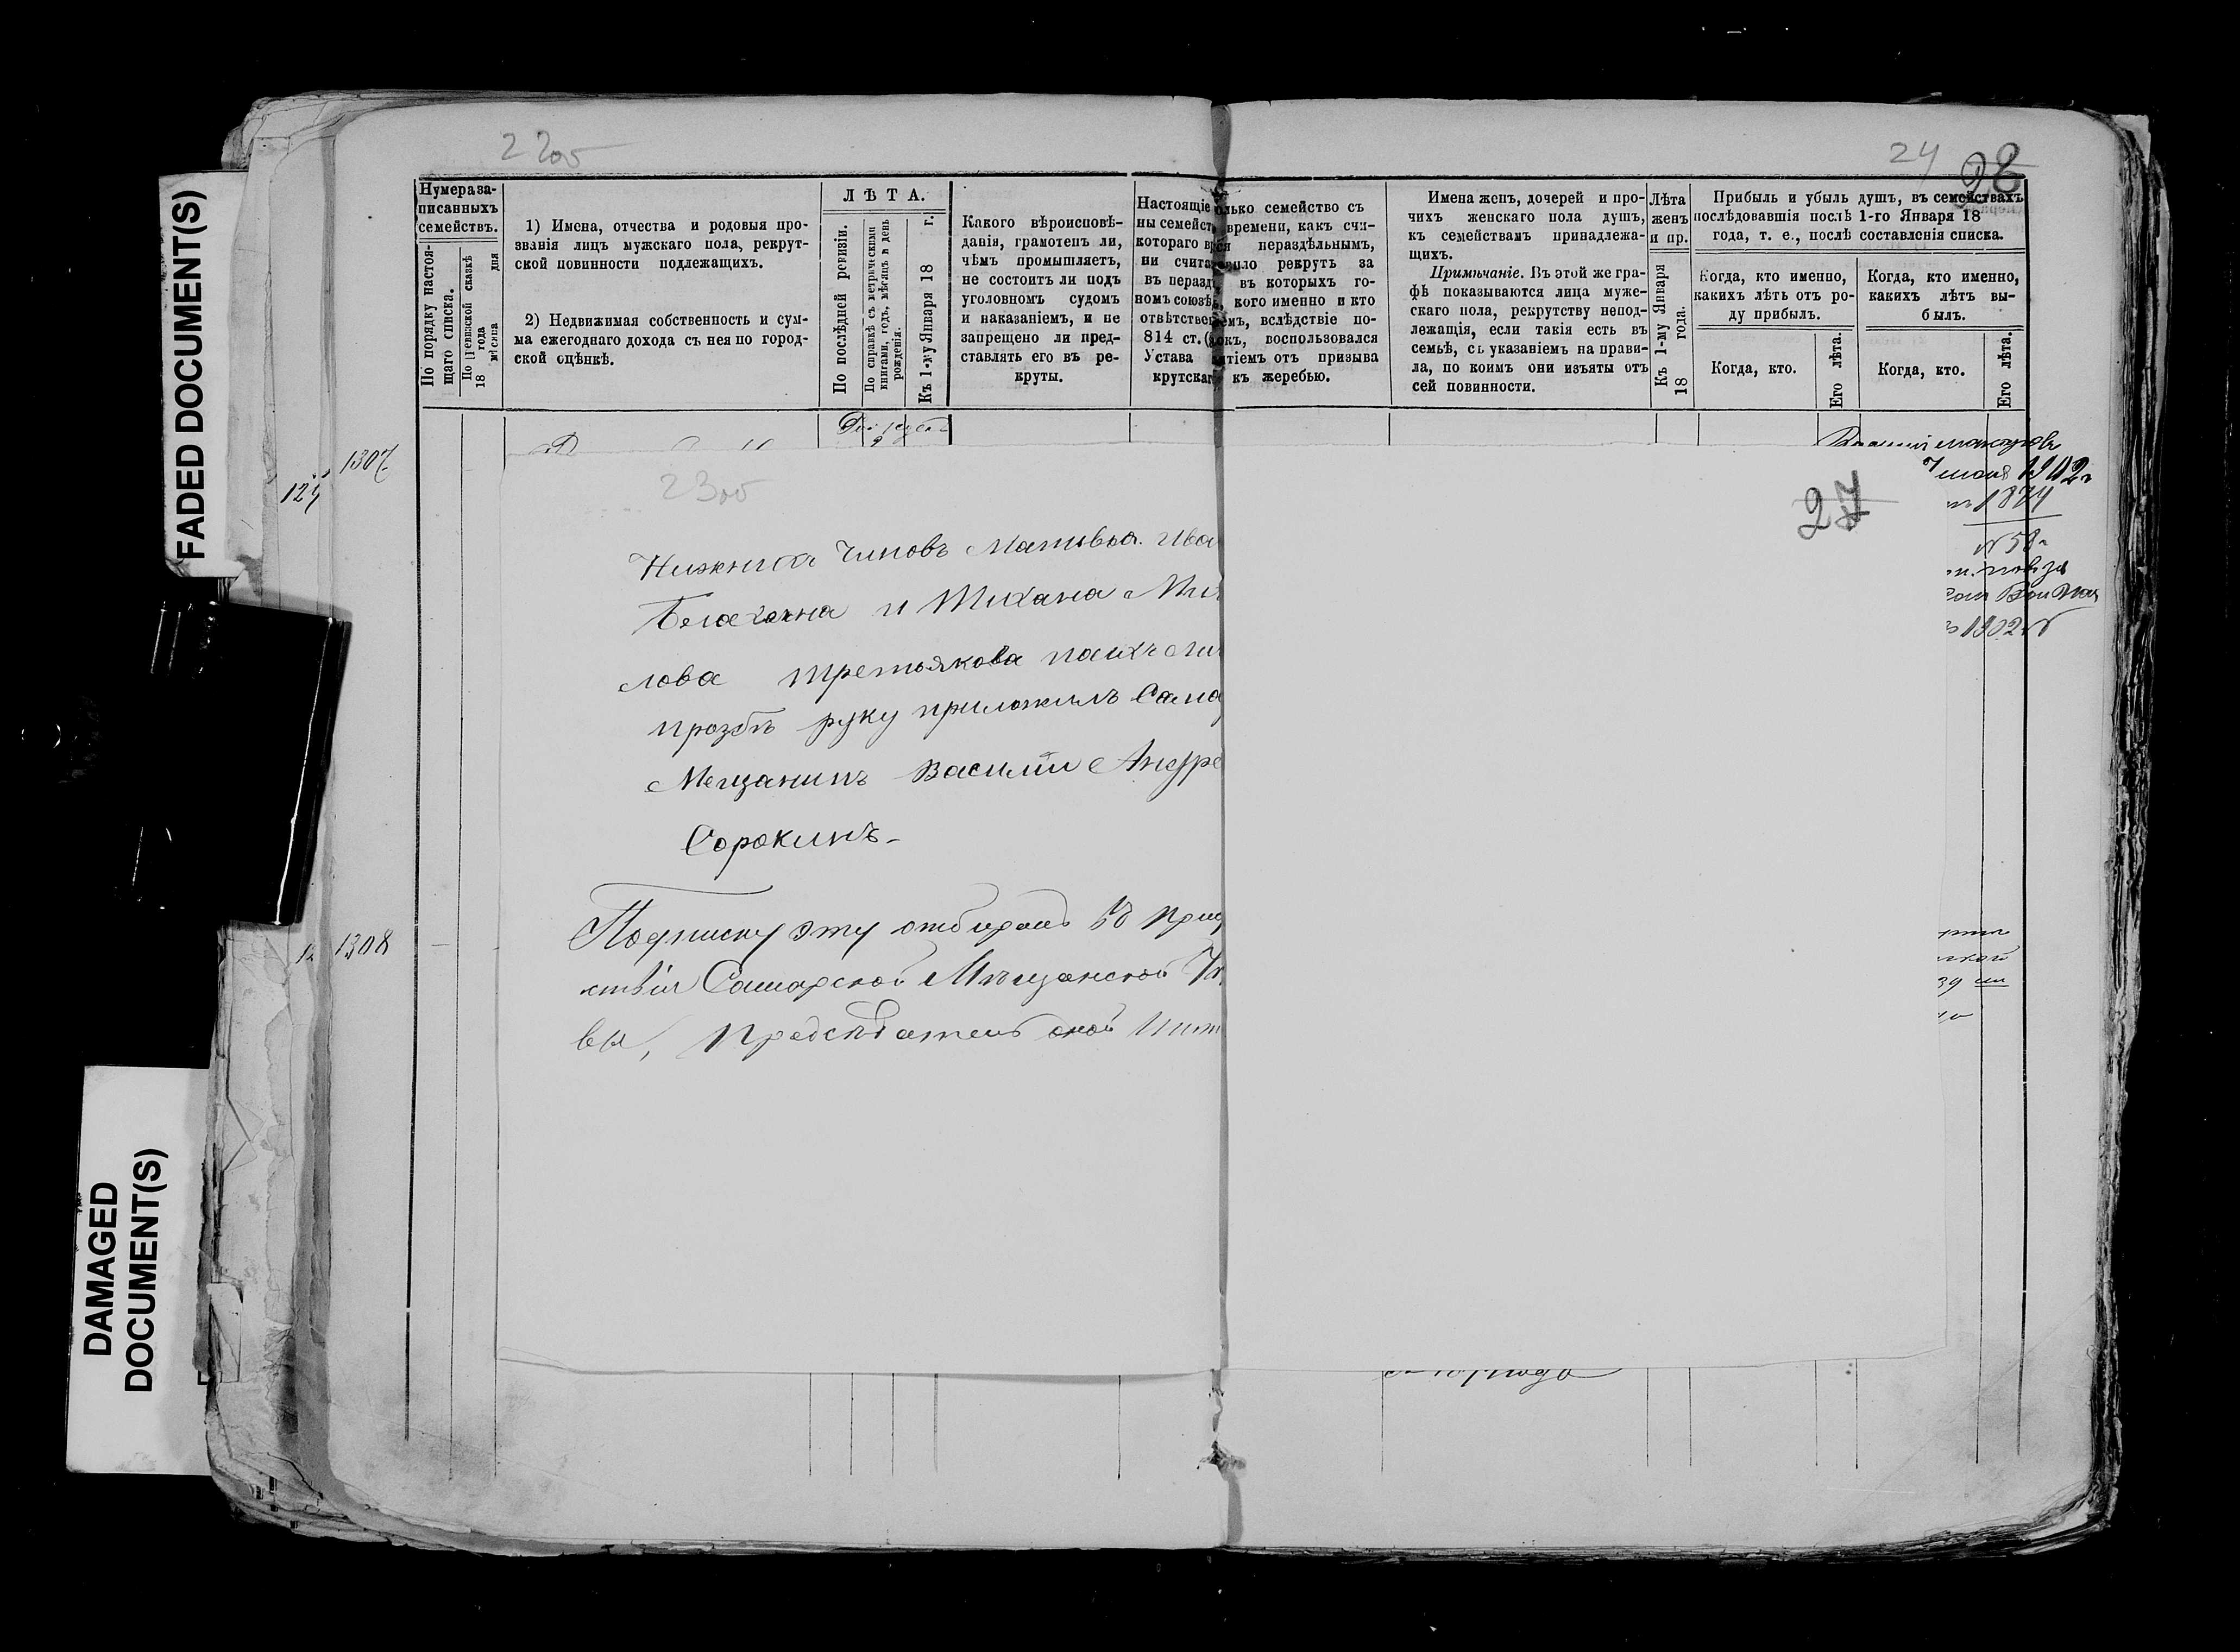 FADED DOCUMENT(S)
DAMAGED
DOCUMENT(S)
22об
24
28
Нумера за-
писанныхъ
семействъ.
По порядку настоя-
щаго списка.
По ревизской сказкѣ
18 года мѣсяца дня
1) Имена, отчества и родовыя про-
званія лицъ мужскаго пола, рекрут-
ской повинности подлежащихъ.
2) Недвижимая собственность и сум-
ма ежегоднаго дохода съ нея по город-
ской оцѣнкѣ.
ЛѢТА.
По послѣдней ревизіи.
По справкѣ съ метрическими
книгами, годъ, мѣсяцъ и день
рожденія.
Къ 1-му Января 18 г.
Какого вѣроисповѣ-
данія, грамотенъ ли,
чѣмъ промышляетъ,
не состоитъ ли подъ
уголовномъ судомъ
и наказаніемъ, и не
запрещено ли пред-
ставлять его въ ре-
круты.
Настоящіе
ны семейст
котораго в
ни счита
въ неразд
номъ союзѣ
отвѣтстве
814 ст.
Устава
крутскаг
лько семейство съ
времени, какъ счи-
нераздѣльнымъ,
вило рекрутъ за
въ которыхъ го-
кого именно и кто
емъ, вслѣдствіе по-
окъ, воспользовался
тіемъ отъ призыва
къ жеребью.
Имена женъ, дочерей и про-
чихъ женскаго пола душъ,
къ семействамъ принадлежа-
щихъ.
Примѣчаніе. Въ этой же гра-
фѣ показываются лица муже-
скаго пола, рекрутству непод-
лежащія, если такія есть въ
семьѣ, съ указаніемъ на прави-
ла, по коимъ они изъяты отъ
сей повинности.
Лѣта
женъ
и пр.
Къ 1-му Января
18 года.
Прибыль и убыль душъ, въ семействахъ
послѣдовавшія послѣ 1-го Января 18
года, т. е., послѣ составленія списка.
Когда, кто именно,
какихъ лѣтъ отъ ро-
ду прибылъ.
Когда, кто именно,
какихъ лѣтъ вы-
былъ.
Когда, кто.
Его лѣта.
Когда, кто.
Его лѣта.
1307
124
1902г
1874
№ 58
1902
23об
27
Нижнихъ Чиновъ Матвѣя Ива
и Тихана
лова Третьякова поихъ
прозбѣ руку приложилъ Сама
Мещанинъ Василій Андре
Сорокинъ
Подписку эту отбиралъ въ прис
ствіи Самарской Мѣщанской Уп
вы, Предсѣдатель оной
1308
39
года